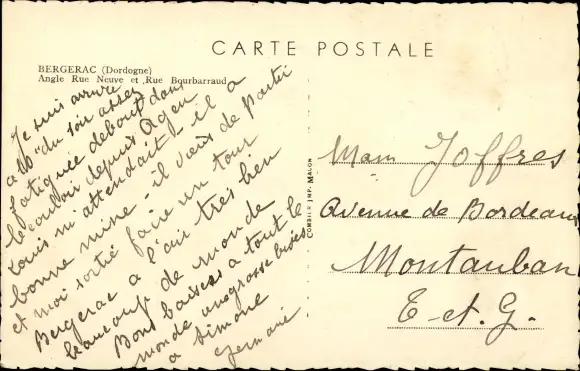 CARTE POSTALE
BERGERAC (Dordogne)
Angle Rue Neuve et Rue Bourbarraud
Je suis arrivée
a 10h du soir assez
fatiguée debout dans
le couloir depuis Agen
Louis m'attendait - il a
bonne mine - il vient de partir
et moi sortie faire un tour
Bergerac a l'air très bien
beaucoup de monde
Bons baisers a tout le
monde une grosse bises
a Simone
Germaine
COMBIER IMP. MACON
Mam Joffres
Avenue de Bordeaux
Montauban
T-et.G.